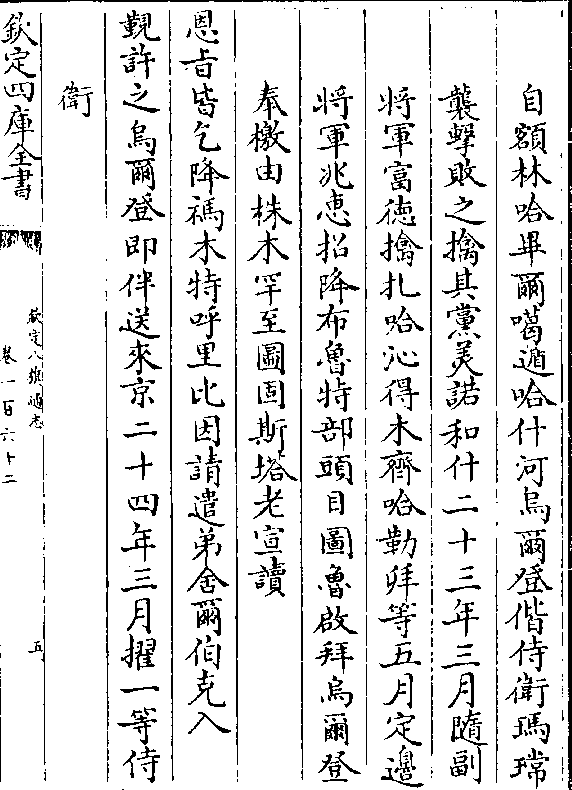 自額林哈畢爾噶遁哈什河烏爾登偕侍衛瑪瑺
襲擊敗之擒其黨美諾和什二十三年三月隨副
將軍富德擒扎哈沁得木齊哈勒拜等五月定邊
將軍兆惠招降布魯特部頭目圖魯啟拜烏爾登
奉檄由株木罕至圖固斯塔老宣讀
恩旨皆乞降禡木特呼里比因請遣弟舍爾伯克入
覲許之烏爾登即伴送來京二十四年三月擢一等侍
衛
欽定四庫全書
欽定八旗通志
卷一百六十二
五